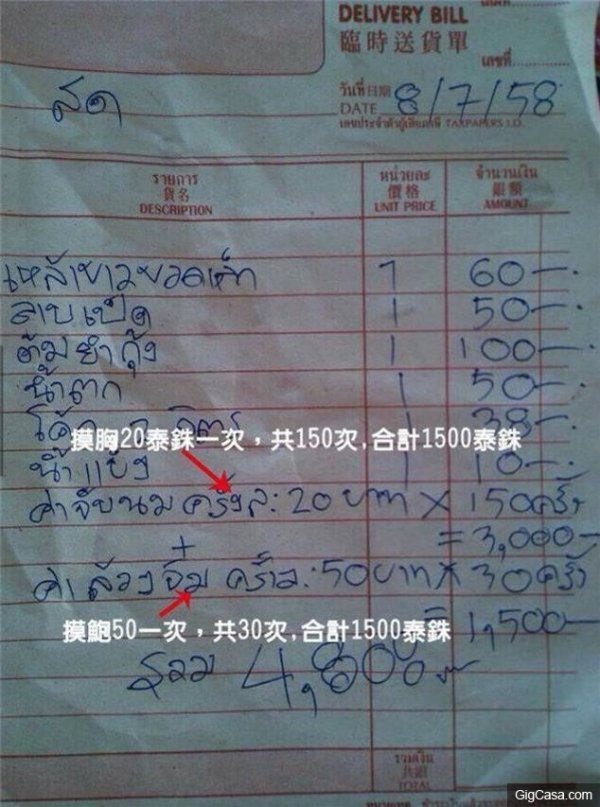 DELIVERY BILL
臨時送貨單
เลขที่
วันที่ 日期
DATE 8/7/58
เลขประจำตัวผู้เสียภาษี TAXPAPERS I.D.
สด
รายการ หน่วยละ จำนวนเงิน
貨名 價格 銀額
DESCRIPTION UNIT PRICE AMOUNT
1 60-.
ลาบเป็ด 1 50-.
ต้มยำกุ้ง 1 100-.
น้ำตก 1 50-.
โค้ก ลิตร 1 38-.
摸胸20泰銖一次，共150次,合計1500泰銖
น้ำแข็ง 1 10-.
ค่าจับนม ครั้งล:20 บาท X 150ครั้ง
+ = 3,000-
ค่าล้วง ครั้งล:50บาท X 30ครั้ง
摸鮑50一次，共30次,合計1500泰銖
= 1,500-
รวม 4,808
รวมเงิน
共銀
TOTAL
GigCasa.com